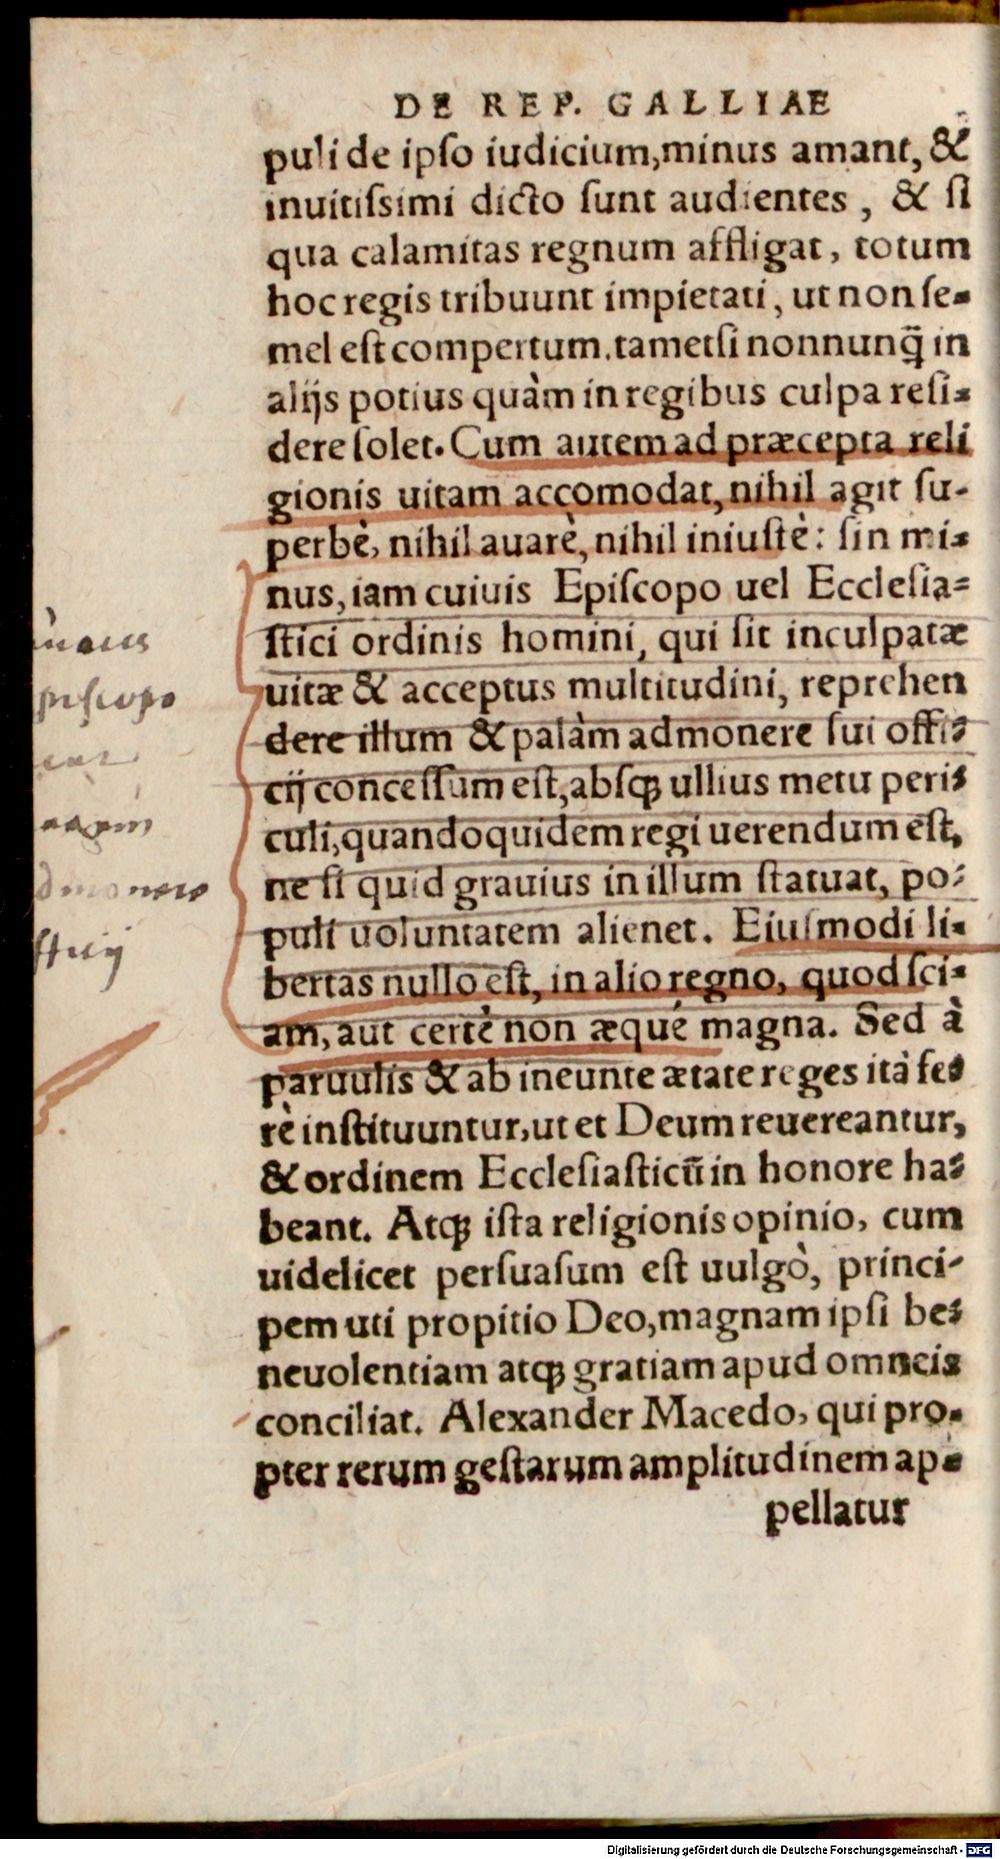 DE REP. GALLIAE
puli de ipſo iudicium, minus amant, &
inuitiſsimi dicto ſunt audientes, & ſi
qua calamitas regnum affligat, totum
hoc regis tribuunt impietati, ut non ſe-
mel eſt compertum. tametſi nonnunq̃ in
alijs potius quàm in regibus culpa reſi-
dere ſolet. Cum autem ad præcepta reli
gionis uitam accomodat, nihil agit ſu-
perbè, nihil auarè, nihil iniuſtè: ſin mi-
nus, iam cuiuis Epiſcopo uel Eccleſia-
ſtici ordinis homini, qui ſit inculpatæ
uitæ & acceptus multitudini, reprehen
dere illum & palàm admonere ſui offi-
cij conceſſum eſt, abſq́; ullius metu peri-
culi, quandoquidem regi uerendum eſt,
ne ſi quid grauius in illum ſtatuat, po-
puli uoluntatem alienet. Eiuſmodi li-
bertas nullo eſt, in alio regno, quod ſci-
am, aut certè non æqué magna. Sed à
paruulis & ab ineunte ætate reges ità fe-
rè inſtituuntur, ut et Deum reuereantur,
& ordinem Eccleſiaſticũ in honore ha-
beant. Atq́; iſta religionis opinio, cum
uidelicet perſuaſum eſt uulgò, princi-
pem uti propitio Deo, magnam ipſi be-
neuolentiam atq́; gratiam apud omneis
conciliat. Alexander Macedo, qui pro-
pter rerum geſtarum amplitudinem ap-
pellatur
piſcopo
regem
dmonere
fficij
Digitalisierung gefördert durch die Deutsche Forschungsgemeinschaft - DFG